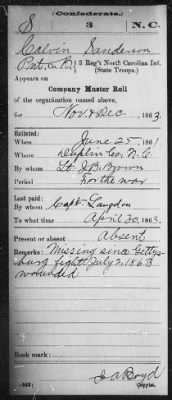 Confederate.
S 3 N.C.
Calvin Sanderson
Pvt, Co. K, 3 Reg't North Carolina Inf.
(State Troops.)
Appears on
Company Muster Roll
of the organization named above,
for Nov & Dec, 1863.
Enlisted:
When June 25, 1861
Where Duplin Co, N.C.
By whom Lt J.B. Brown
Period For the war
Last paid:
By whom Capt. Langdon
To what time April 30, 1863.
Present or absent Absent
Remarks: Missing since Gettys-
burg fight July 2, 1863
wounded
Book mark:
J A Boyd
(642) Copyist.